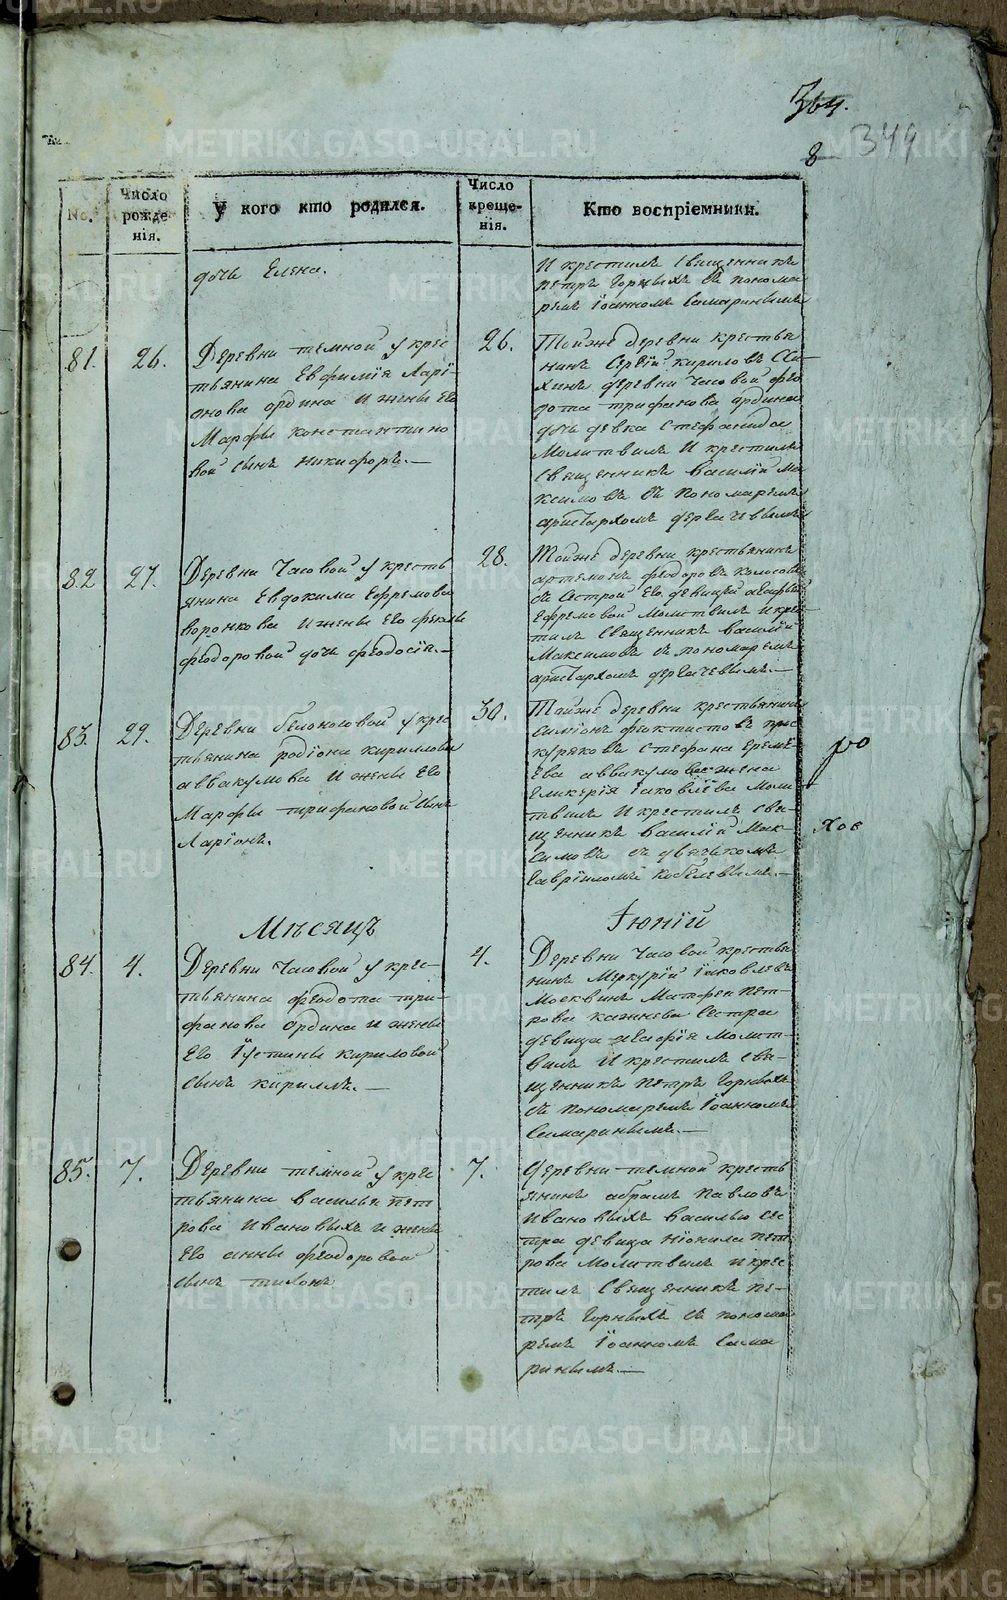 364.
8 344
№.
Число рожде-нія.
У кого кто родился.
Число креще-нія.
Кто воспріемники.
дочь Елена.
И крестилъ Священникъ
петръ Горныхъ съ понома
ремъ Іоанномъ Самаринымъ
81. 26.
Деревни темной у крес
тьянина Евфимія Ларі-
онова ордина и жены Его
Марфы константино
вой сынъ никифоръ.—
26.
Тойже деревни крестья
нинъ Сергій кириловъ
деревни Часовой фео
дота трифанова ордина
дочь девка Стефанида
Молитвилъ И крестилъ
Священникъ василій ма
ксимовъ съ пономаремъ
аристархомъ дергачевымъ
82 27.
Деревни Часовой у кресть
янина Евдокима Ефремова
воронкова и жены Его феклы
феодоровой дочь феодосія.—
28.
Тойже деревни крестьянинъ
артемонъ феодоровъ
съ Сестрой Его девицей
Ефремовой Молитвилъ и крес
тилъ Священникъ василій
Максимовъ съ пономаремъ
аристархомъ дергачевымъ.—
83. 29.
Деревни белоноговой у крес
тьянина родіона кириллова
аввакумова и жены Его
Марфы трифановой сынъ
Ларіонъ.
30.
Тойже деревни крестьянинъ
симіонъ фиктистовъ
Стефана Ереме
Ева аввакумова жена
Гликерія іаковлева моли
твилъ И крестилъ свя-
щенникъ василій Мак-
симовъ съ дьячькомъ
гавріиломъ кобелевымъ.—
Мѣсяцъ Іюній
84. 4.
Деревни Часовой у крес-
тьянина феодота три-
фанова Ордина и жены
Его Іустины кириловой
сынъ кириллъ.—
4.
Деревни Часовой крестья
нинъ Меркурій Іаковлевъ
Москвинъ Матфея пет-
рова Сестра
девица Молит-
вилъ И крестилъ Свя-
щенникъ петръ Горныхъ
съ пономаремъ Іоанномъ
Самаринымъ.—
85. 7.
Деревни темной у крес
тьянина василья пет
рова Ивановыхъ и жены
Его анны феодоровой
сынъ тихонъ
7.
Деревни темной кресть
янинъ абрамъ павловъ
Ивановыхъ василью сес
тра девица нионила пет
рова молитвилъ и крес
тилъ Священникъ пе-
тръ Горныхъ съ понома
ремъ Іоанномъ Сама
ринымъ.—
METRIKI.GASO-URAL.RU